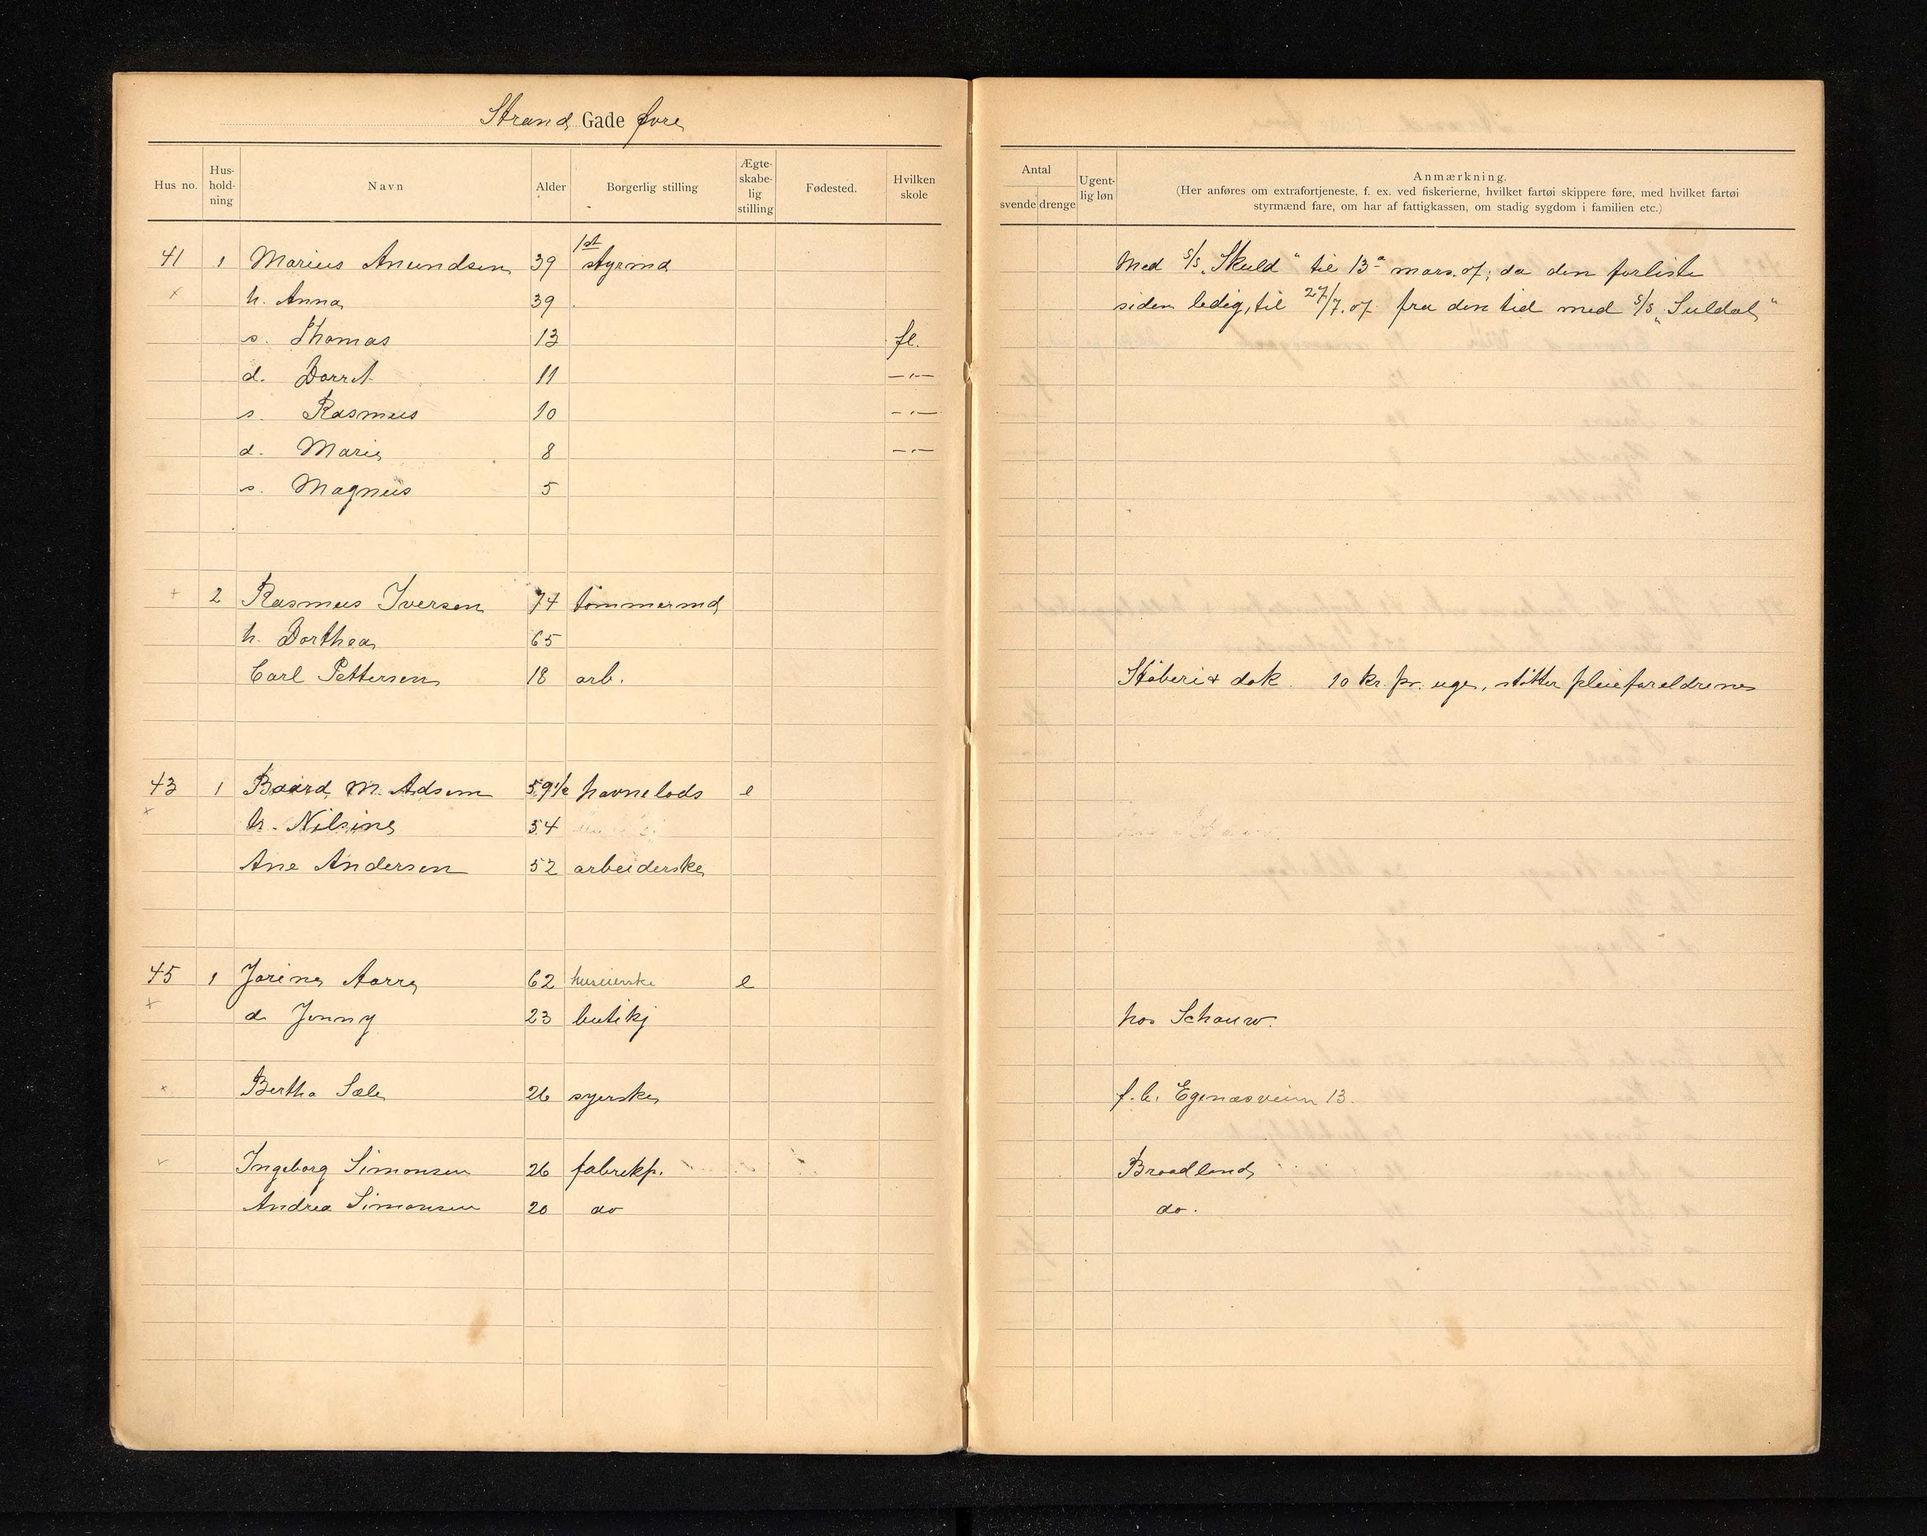 Strand Gade øvre
Hus no. Hus-hold-ning Navn Alder Borgerlig stilling Ægte-skabe-lig stilling Fødested. Hvilken skole
Antal svende drenge Ugent-lig løn Anmærkning.
(Her anføres om extrafortjeneste, f. ex. ved fiskerierne, hvilket fartøi skippere føre, med hvilket fartøi
styrmænd fare, om har af fattigkassen, om stadig sygdom i familien etc.)
41 1 Marius Anundsen 39 1st styrmd Med S/S „Skuld" til 13de mars. 07, da den forliste
h. Anna 39 siden ledig, til 27/7. 07 fra den tid med S/S „Suldal"
s. Thomas 13 fl.
d. Dorret 11 —"—
s. Rasmus 10 —"—
d. Marie 8 —"—
s. Magnus 5
2 Rasmus Iversen 74 tömmermd
h. Dorthea 65
Carl Pettersen 18 arb. Støberi & dok. 10 kr. pr. uge, støtter pleieforeldrene
43 1 Baard M. Adsen 59 1/2 havnelods e
h. Nilsine 54
Ane Andersen 52 arbeiderske
45 1 Jorine Aarre 62 huseierske e
d. Jenny 23 butikj hos Schouw.
Bertha Sæle 26 syerske f. b. Egenæsveien 13.
Ingeborg Simonsen 26 fabrikp. Broadland
Andrea Simonsen 20 do do.